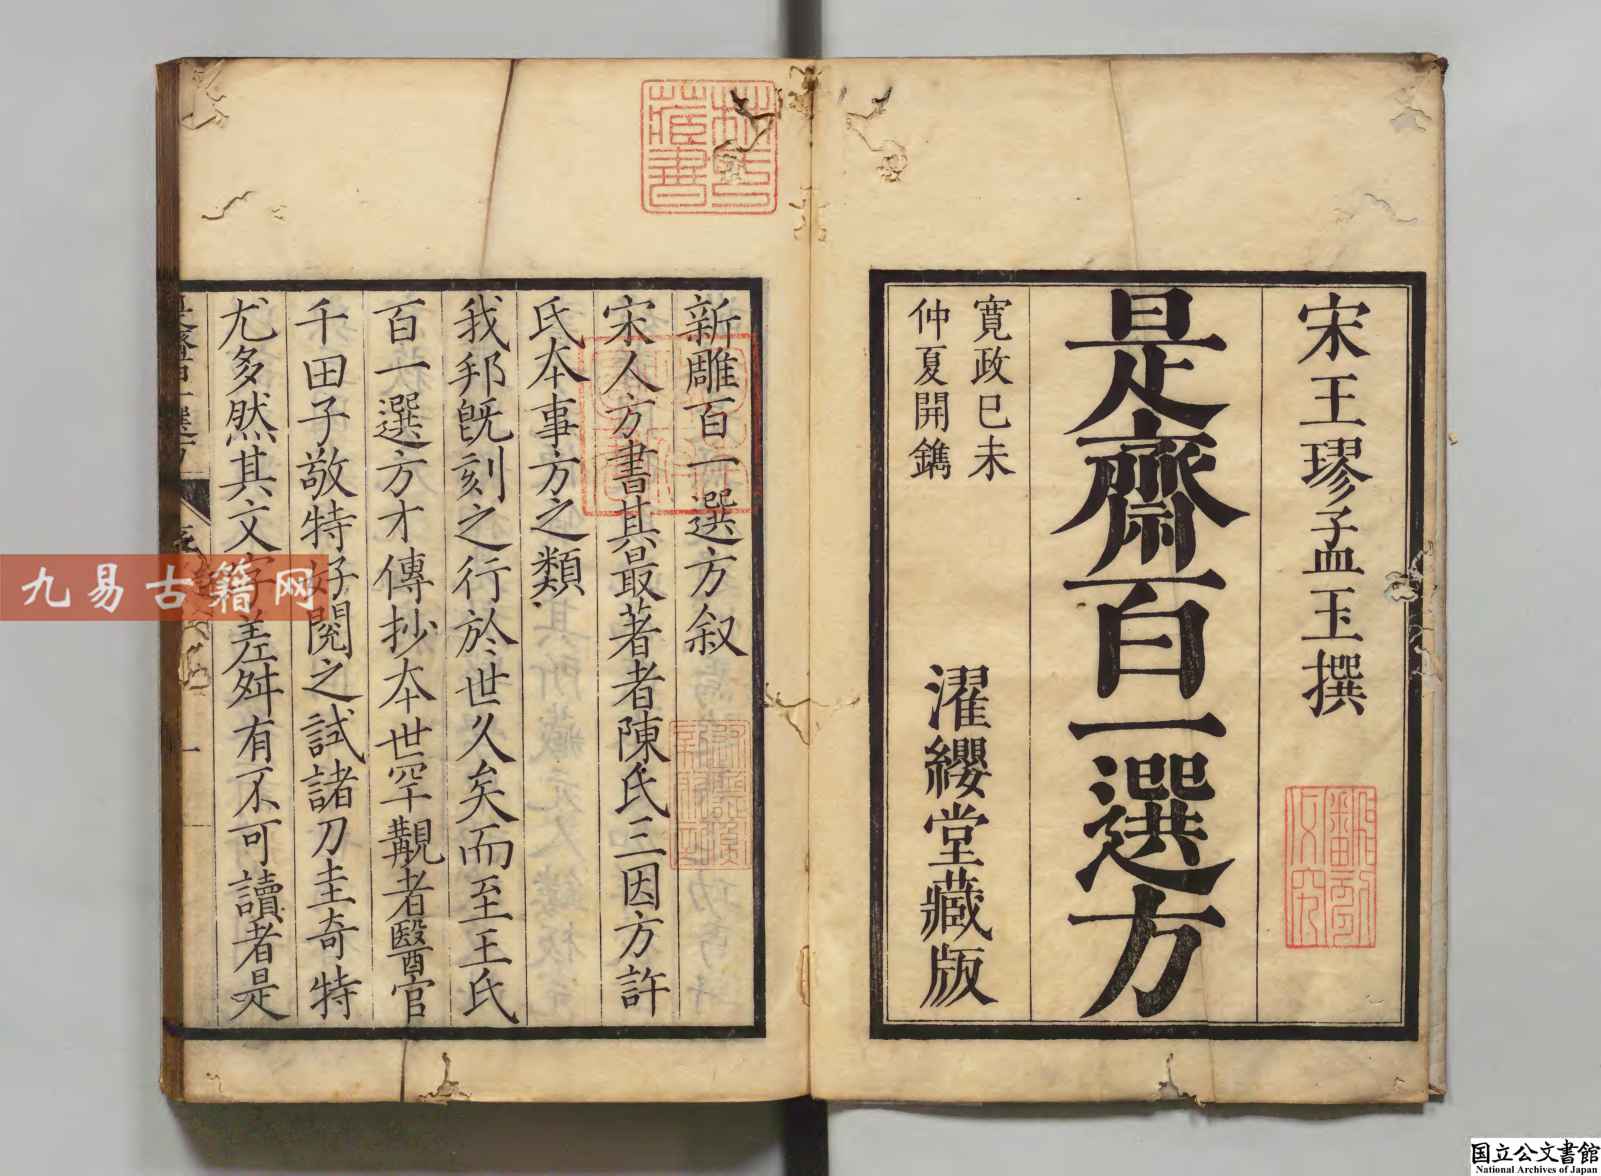 宋王璆孟玉撰
是齋百一選方
寛政己未
仲夏開鐫
濯纓堂藏版
新雕百一選方叙
宋人方書其最著者陳氏三因方許
氏本事方之類
我邦既刻之行於世久矣而至王氏
百一選方才傳抄本世罕覯者醫官
千田子敬特好閱之試諸刀圭奇特
尤多然其文字差舛有不可讀者是
藏書
九易古籍网
国立公文書館
National Archives of Japan